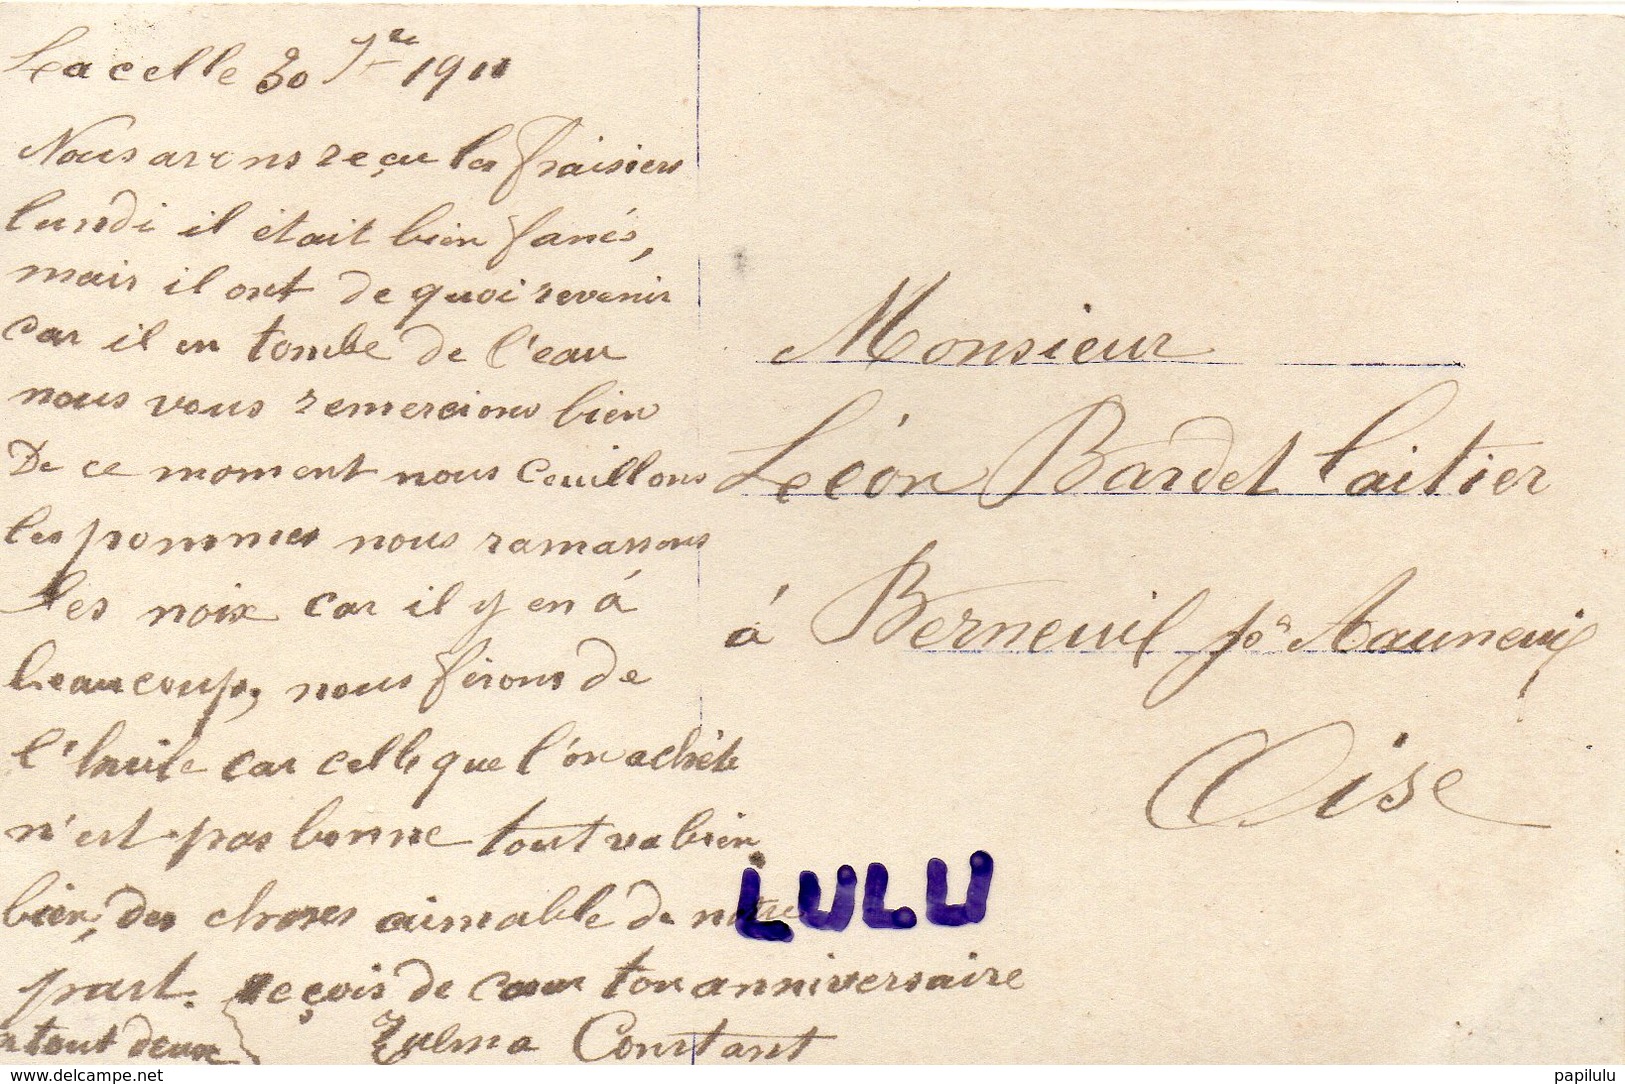 Lacelle 30 7re 1911
Nous avons reçu les fraisiers
lundi il était bien fanés,
mais il ont de quoi revenir
car il en tombe de l'eau
nous vous remercions bien
De ce moment nous ceuillons
les pommes nous ramassons
les noix car il y en à
beaucoup, nous ferons de
l'huile car celle que l'on achète
n'est pas bonne tout va bien
bien, des choses aimable de notre
part. reçois de cœur ton anniversaire
a tout deux
Zulma Constant
Monsieur
Léon Bardet laitier
à Berneuil pr Aauneuil
Oise
LULU
www.delcampe.net
papilulu